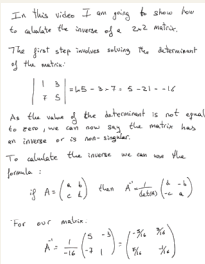 In this video I am going to show how
to calculate the inverse of a 2x2 matrix.
The first step involves solving the determinant
of the matrix:
| 1 3 |
| 7 5 | = 1x5 - 3x7 = 5 - 21 = -16
As the value of the determinant is not equal
to zero, we can now say the matrix has
an inverse or is non-singular.
To calculate the inverse we can use the
formula:
if A = (a b / c d) then A⁻¹ = 1/det(A) (d -b / -c a)
For our matrix:
A⁻¹ = 1/-16 (5 -3 / -7 1) = (-5/16 3/16 / 7/16 -1/16)